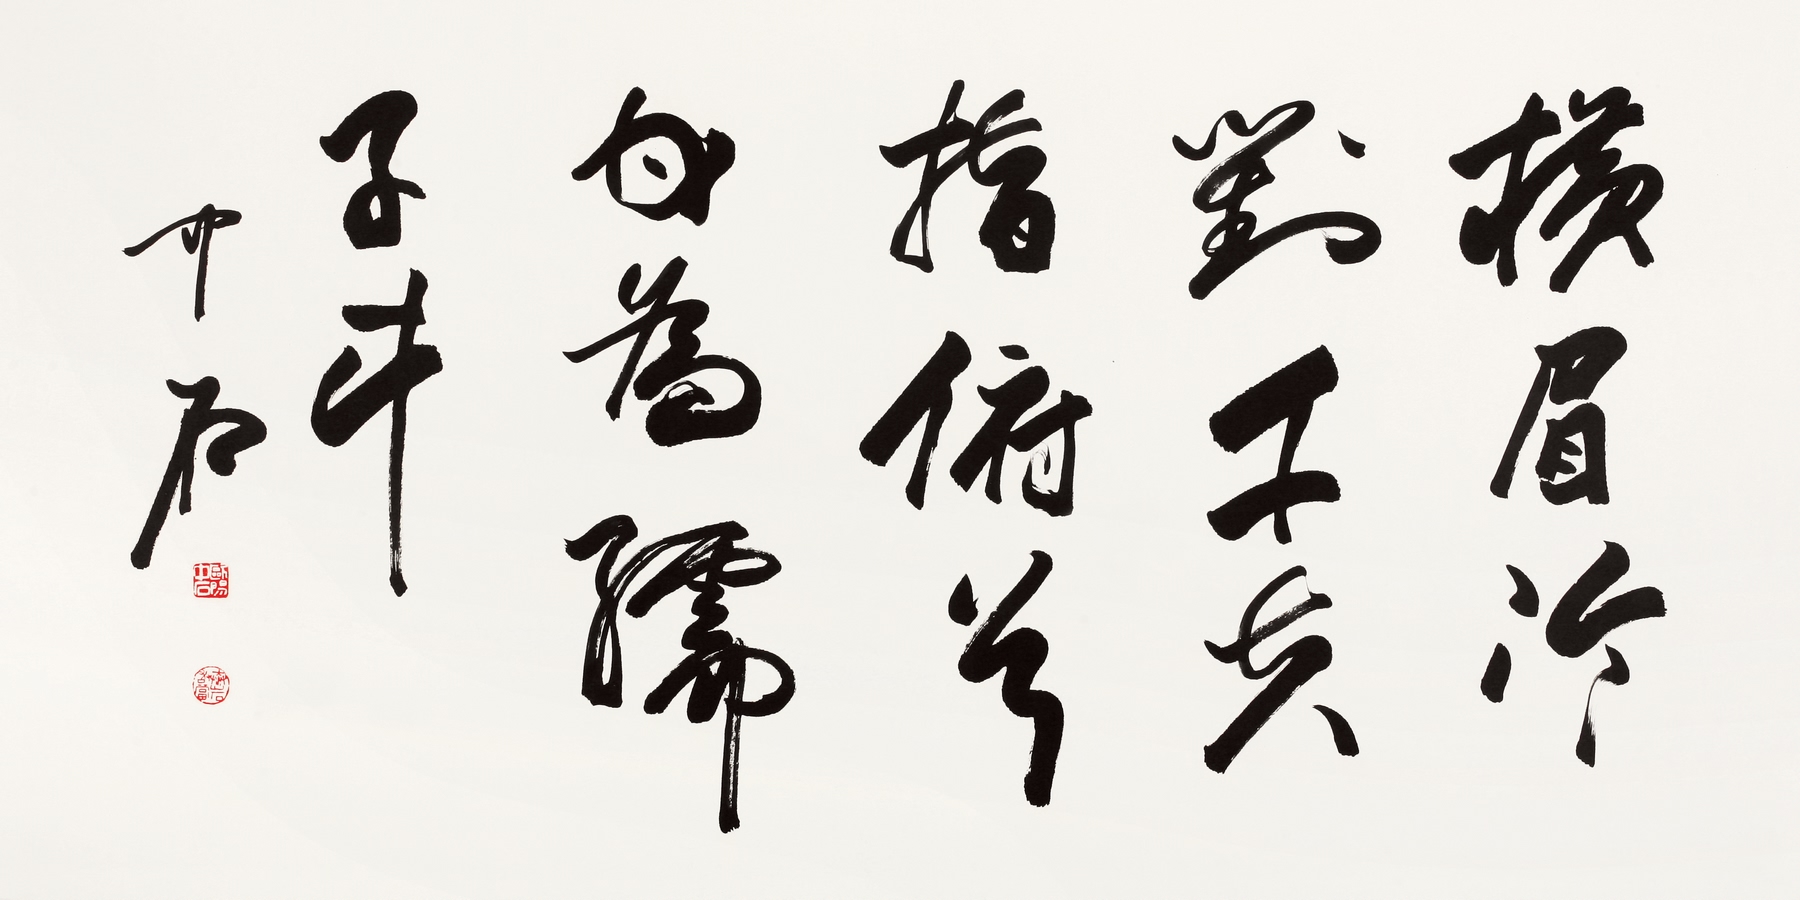 橫眉冷
對千夫
指俯首
甘為孺
子牛
中石
歐陽中石